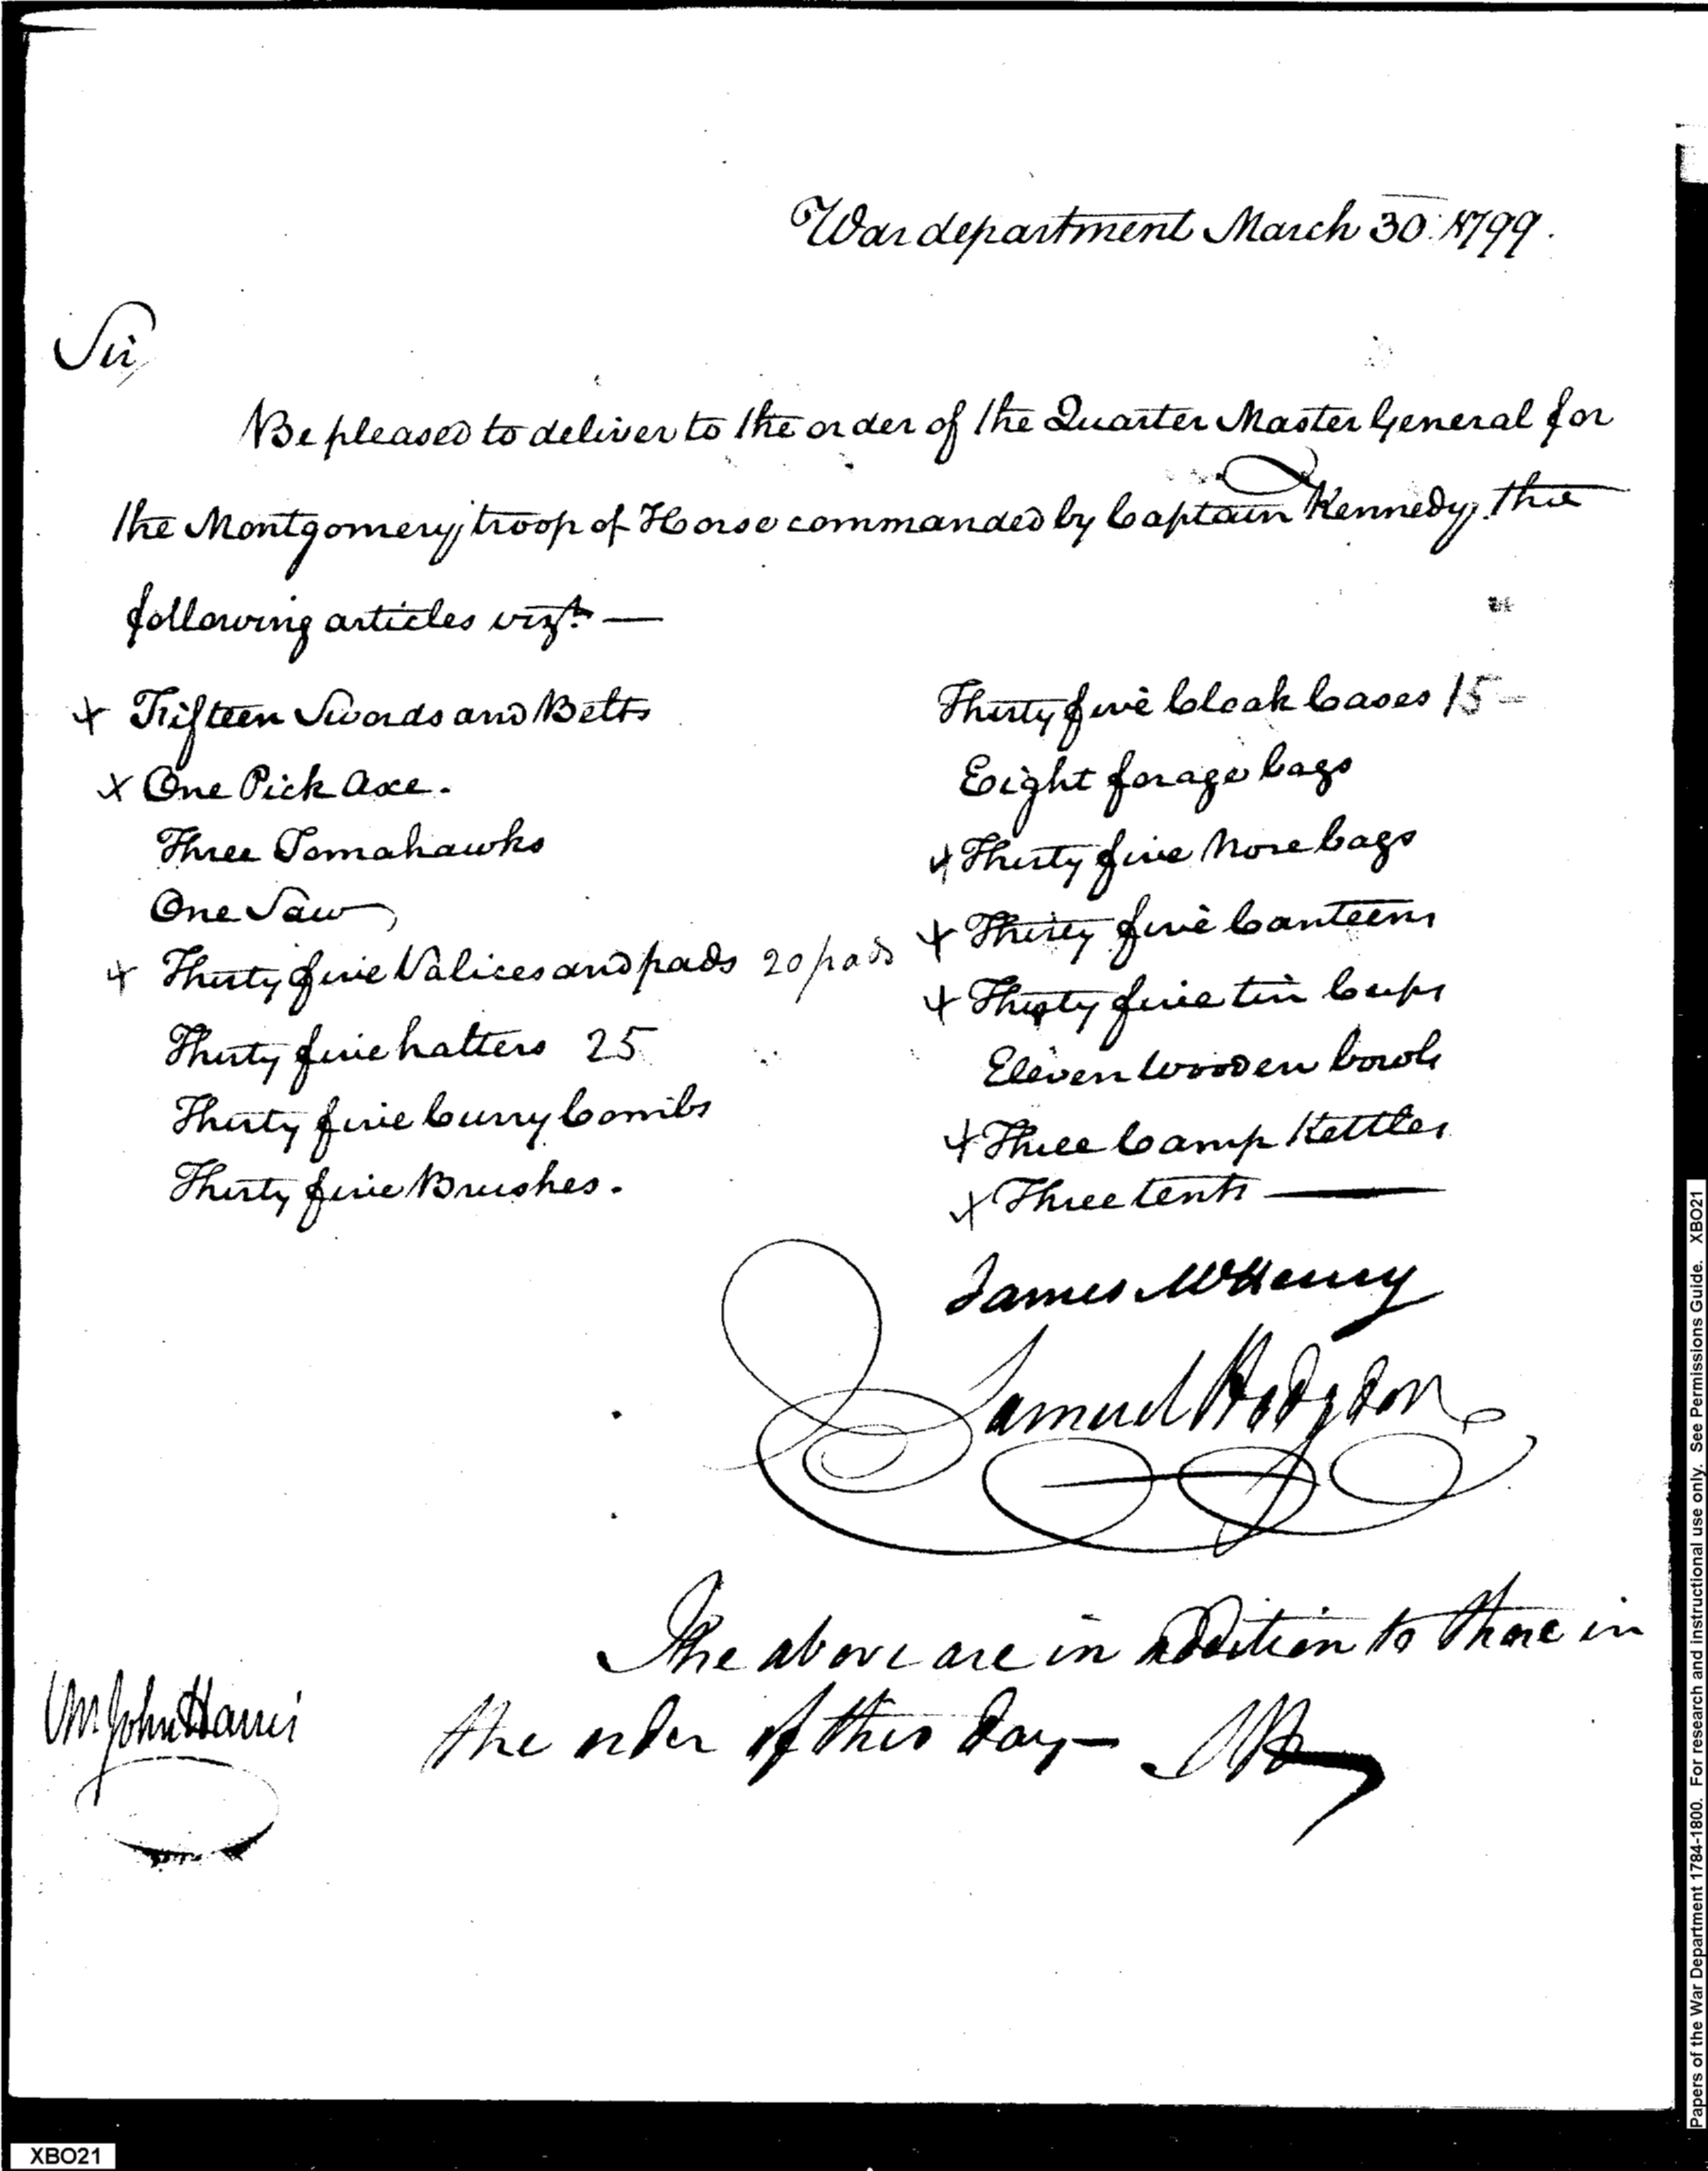 War department March 30. 1799.
Sir,
Be pleased to deliver to the order of the Quarter Master General for
the Montgomery troop of Horse commanded by Captain Kennedy, the
following articles vizt. —
x Fifteen Swords and Belts
x One Pick Axe.
Three Tomahawks
One Saw
x Thirty five Valices and pads 20 pads
Thirty five halters 25
Thirty five Curry Combs
Thirty five Brushes.
Thirty five Cloak Cases 15 –
Eight forage bags
x Thirty five Nose bags
x Thirty five Canteens
x Thirty five tin Cups
Eleven wooden bowls
x Three Camp Kettles
x Three tents —
James McHenry
Samuel Hodgdon
The above are in addition to those in
the order of this day —
Mr John Harris
XBO21
Papers of the War Department 1784-1800. For research and instructional use only. See Permissions Guide. XBO21